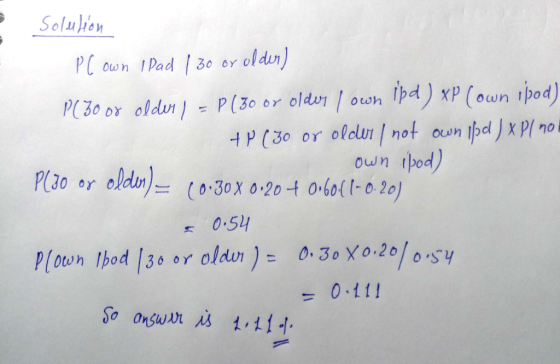 Solution
P( own iPad / 30 or older)
P(30 or older) = P(30 or older / own ipd) xP(own ipod)
+ P(30 or older / not own ipd) x P( no
own ipod)
P(30 or older) = (0.30 x 0.20 + 0.60(1-0.20)
= 0.54
P(own ipod / 30 or older) = 0.30 x 0.20 / 0.54
= 0.111
So answer is 1.11 %